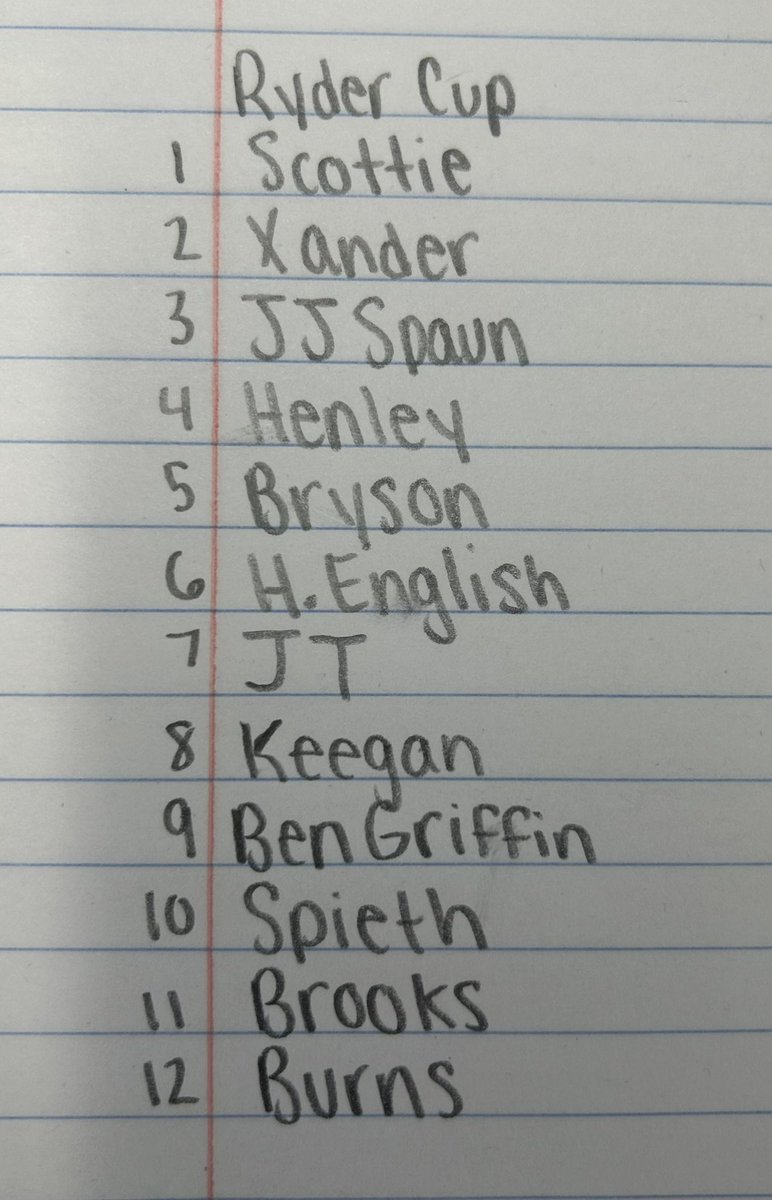 Ryder Cup
1 Scottie
2 Xander
3 JJ Spaun
4 Henley
5 Bryson
6 H. English
7 JT
8 Keegan
9 Ben Griffin
10 Spieth
11 Brooks
12 Burns